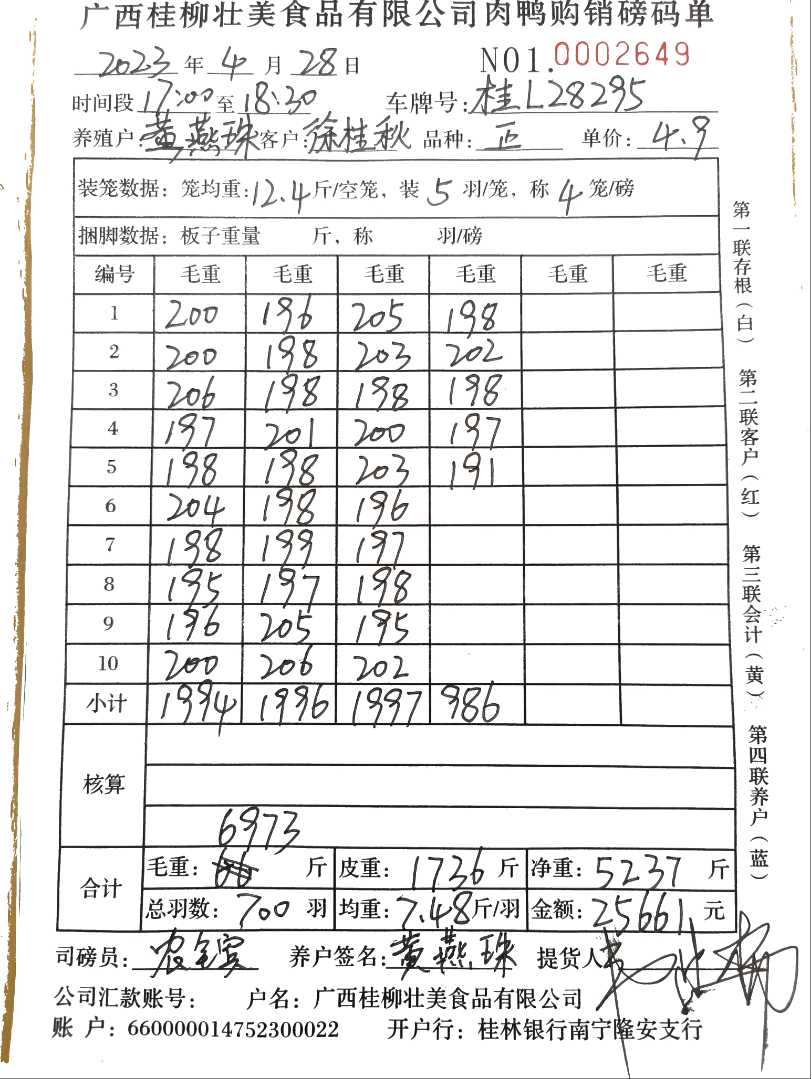 广西桂柳壮美食品有限公司肉鸭购销磅码单
2023 年 4 月 28 日 NO1.0002649
时间段 17:00 至 18:30 车牌号: 桂L28295
养殖户: 黄燕珠 客户: 徐桂秋 品种: 正 单价: 4.9
装笼数据: 笼均重: 12.4 斤/空笼, 装 5 羽/笼, 称 4 笼/磅
捆脚数据: 板子重量 斤, 称 羽/磅
编号 毛重 毛重 毛重 毛重 毛重 毛重
1 200 196 205 198
2 200 198 203 202
3 206 198 198 198
4 197 201 200 197
5 198 198 203 191
6 204 198 196
7 198 199 197
8 195 197 198
9 196 205 195
10 200 206 202
小计 1994 1996 1997 986
核算
6973
合计 毛重: 斤 皮重: 1736 斤 净重: 5237 斤
总羽数: 700 羽 均重: 7.48 斤/羽 金额: 25661 元
司磅员: 养户签名: 黄燕珠 提货人
公司汇款账号: 户名: 广西桂柳壮美食品有限公司
账 户: 660000014752300022 开户行: 桂林银行南宁隆安支行
第一联存根(白) 第二联客户(红) 第三联会计(黄) 第四联养户(蓝)